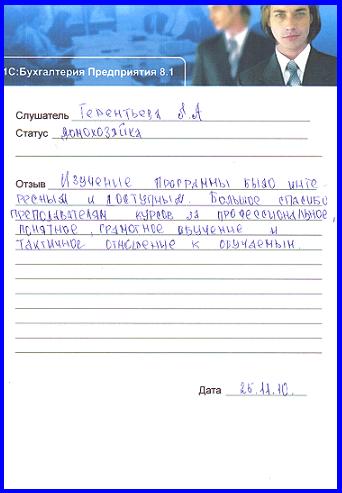 1С:Бухгалтерия Предприятия 8.1
Слушатель Терентьева Л.А
Статус домохозяйка
Отзыв Изучение программы было инте-
ресным и доступным. Большое спасибо
преподавателям курсов за профессиональное,
понятное, грамотное обучение и
тактичное отношение к обучаемым.
Дата 25.11.10.